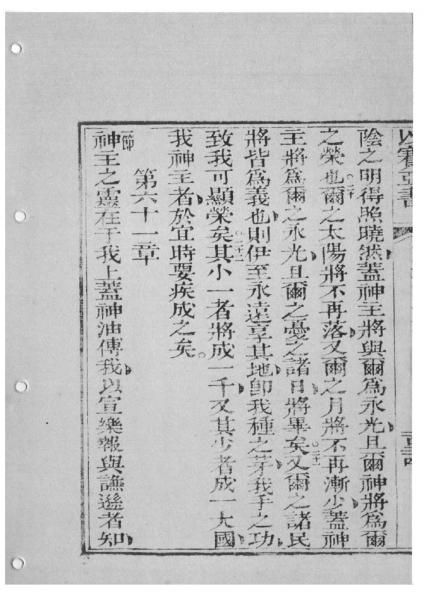 以賽亞書
陰之明得照曉然蓋神主將與爾爲永光且爾神將爲爾
之榮也爾之太陽將不再落又爾之月將不再漸少蓋神
主將爲爾之永光且爾之憂之諸日將畢矣又爾之諸民
將皆爲義也則伊至永遠享其地即我種之芽我手之功
致我可顯榮矣其小一者將成一千又其少者成一大國
我神主者於宜時要疾成之矣。
第六十一章
一節
神主之靈在于我上蓋神油傅我以宣樂報與謙遜者知